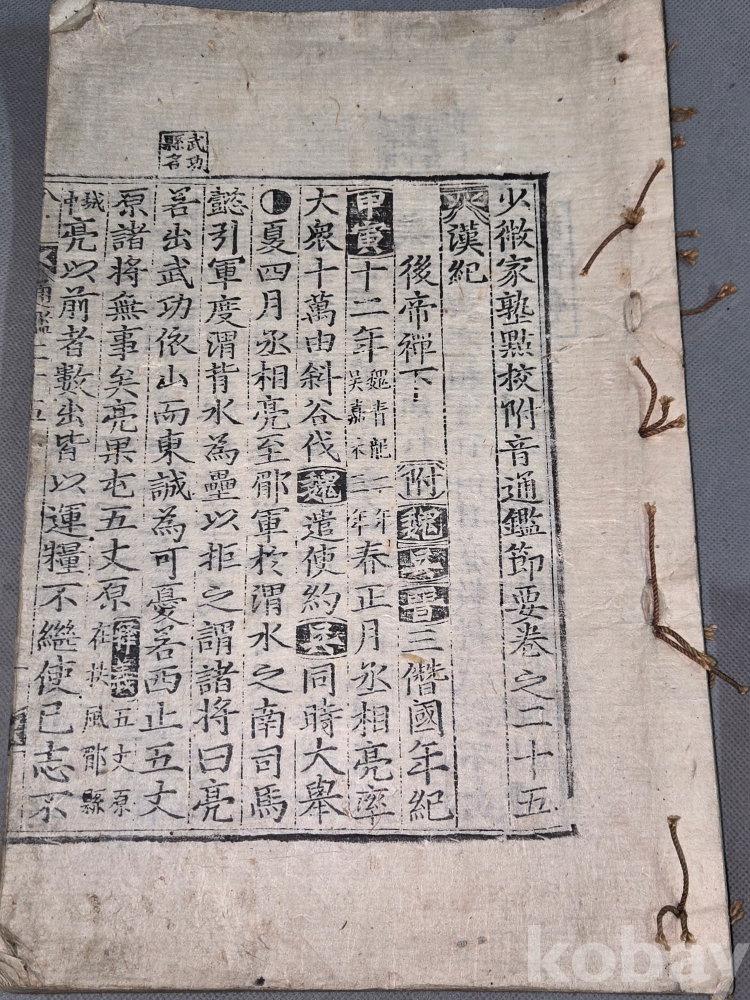 少微家塾點校附音通鑑節要卷之二十五
漢紀
後帝禪下 附魏吳晉三僭國年紀
甲寅十二年魏青龍二年吳嘉禾三年春正月丞相亮率
大衆十萬由斜谷伐魏遣使約吳同時大擧
●夏四月丞相亮至郿軍於渭水之南司馬
懿引軍度渭背水為壘以拒之謂諸將曰亮
若出武功依山而東誠為可憂若西止五丈
武功縣名
原諸將無事矣亮果屯五丈原釋義五丈原在扶風郿縣
亮以前者數出皆以運糧不繼使已志不
通鑑二十五
kobay